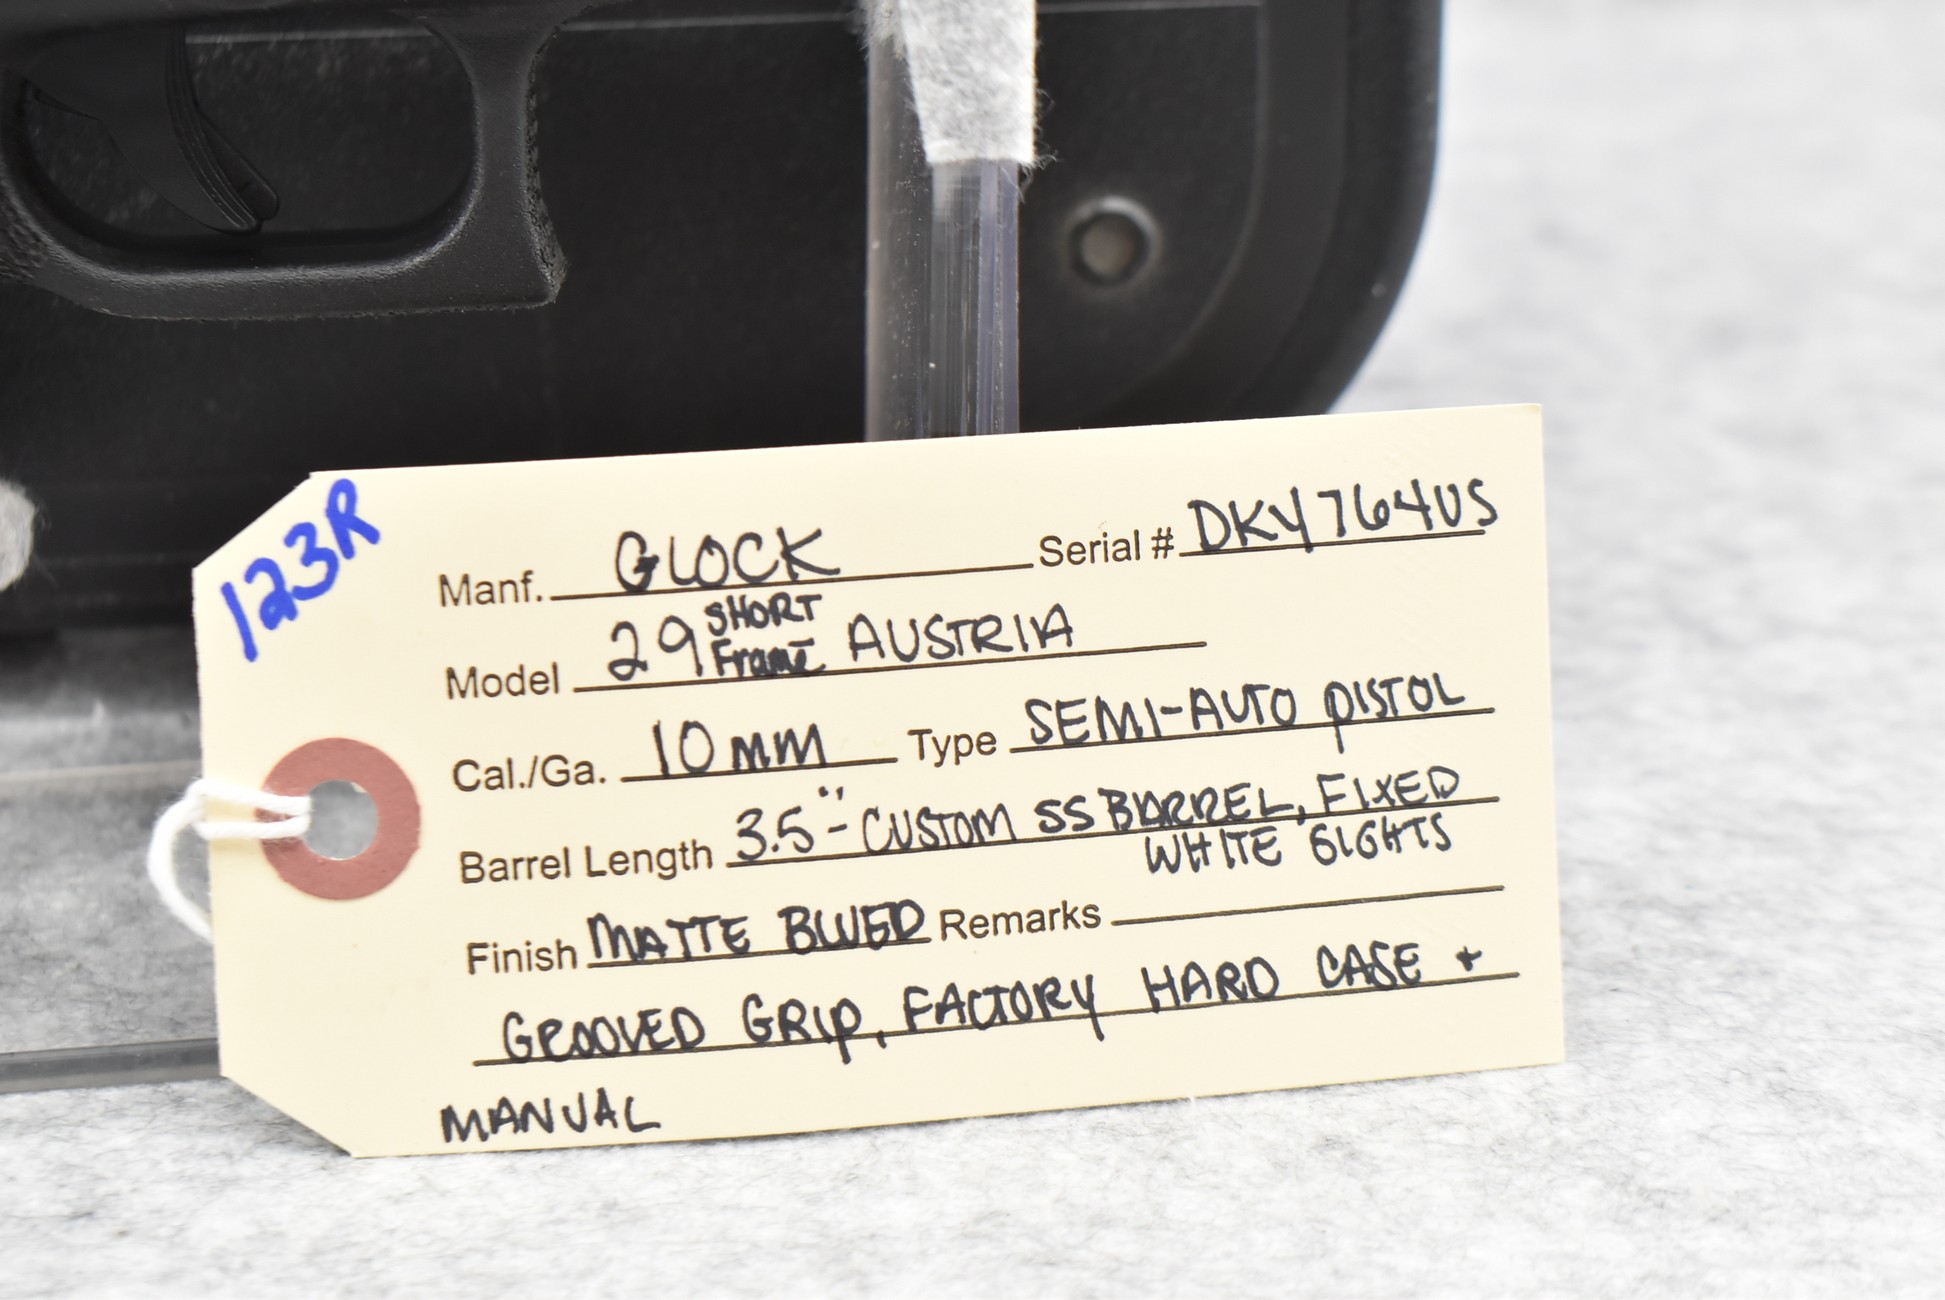 123R
Manf. GLOCK Serial # DKY764US
Model 29 SHORT Frame AUSTRIA
Cal./Ga. 10mm Type SEMI-AUTO PISTOL
Barrel Length 3.5"- CUSTOM SS BARREL, FIXED
WHITE SIGHTS
Finish MATTE BLUED Remarks
GROOVED GRIP, FACTORY HARD CASE +
MANUAL